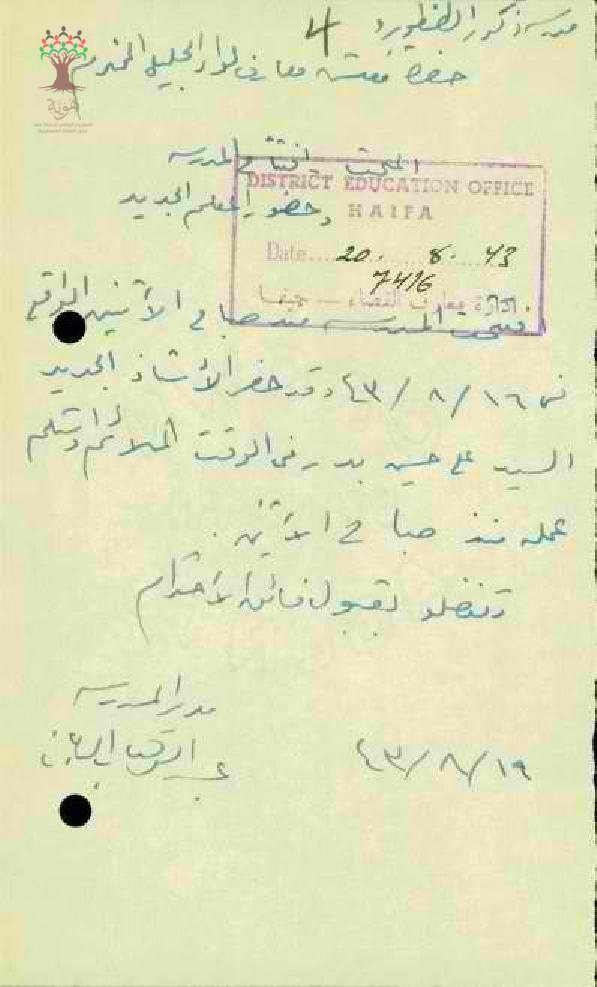 مدرسة ذكور الطنطورة
4
حضرة مفتش معارف لواء الجليل المحترم
هوية
المبحث افتتاح المدرسة
وحضور المعلم الجديد
DISTRICT EDUCATION OFFICE
HAIFA
Date.... 20. 8. 43
7416
دائرة معارف القضاء - حيفا
فتحت المدرسة منذ صباح الاثنين الواقع
في ١٦ / ٨ / ٤٣ وقد حضر الأستاذ الجديد
السيد علي حسين بدر في الوقت الملائم واستلم
عمله منذ صباح الاثنين .
وتفضلوا بقبول فائق الاحترام
مدير المدرسة
عبد
١٩ / ٨ / ٤٣